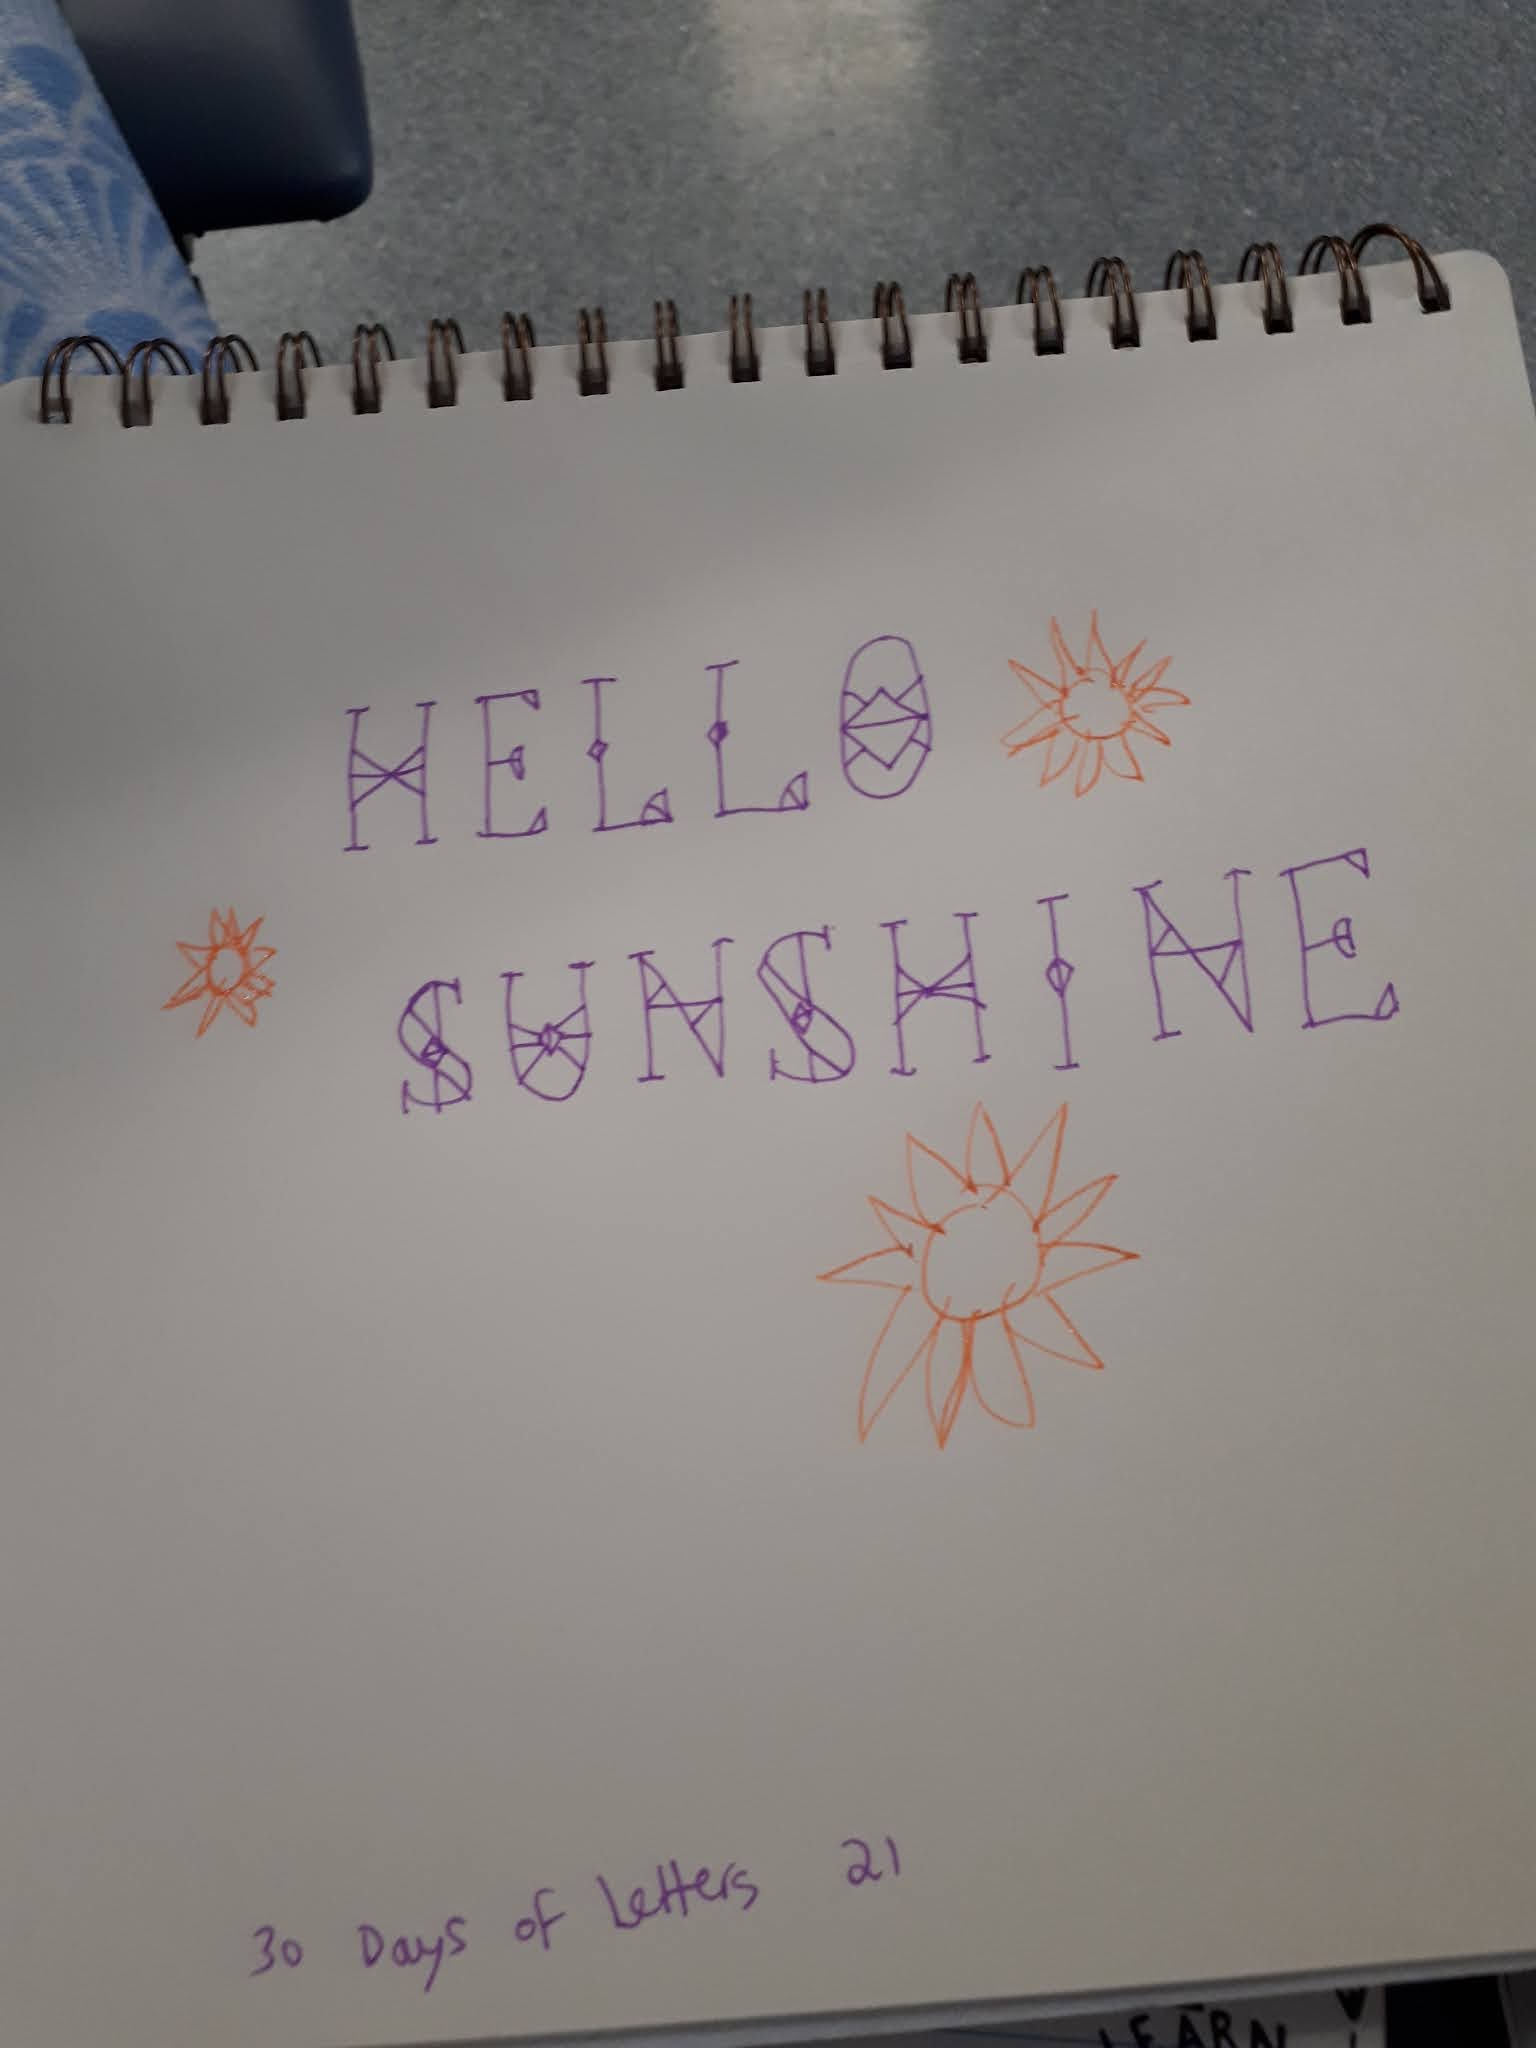 HELLO
SUNSHINE
30 Days of Letters 21
LEARN